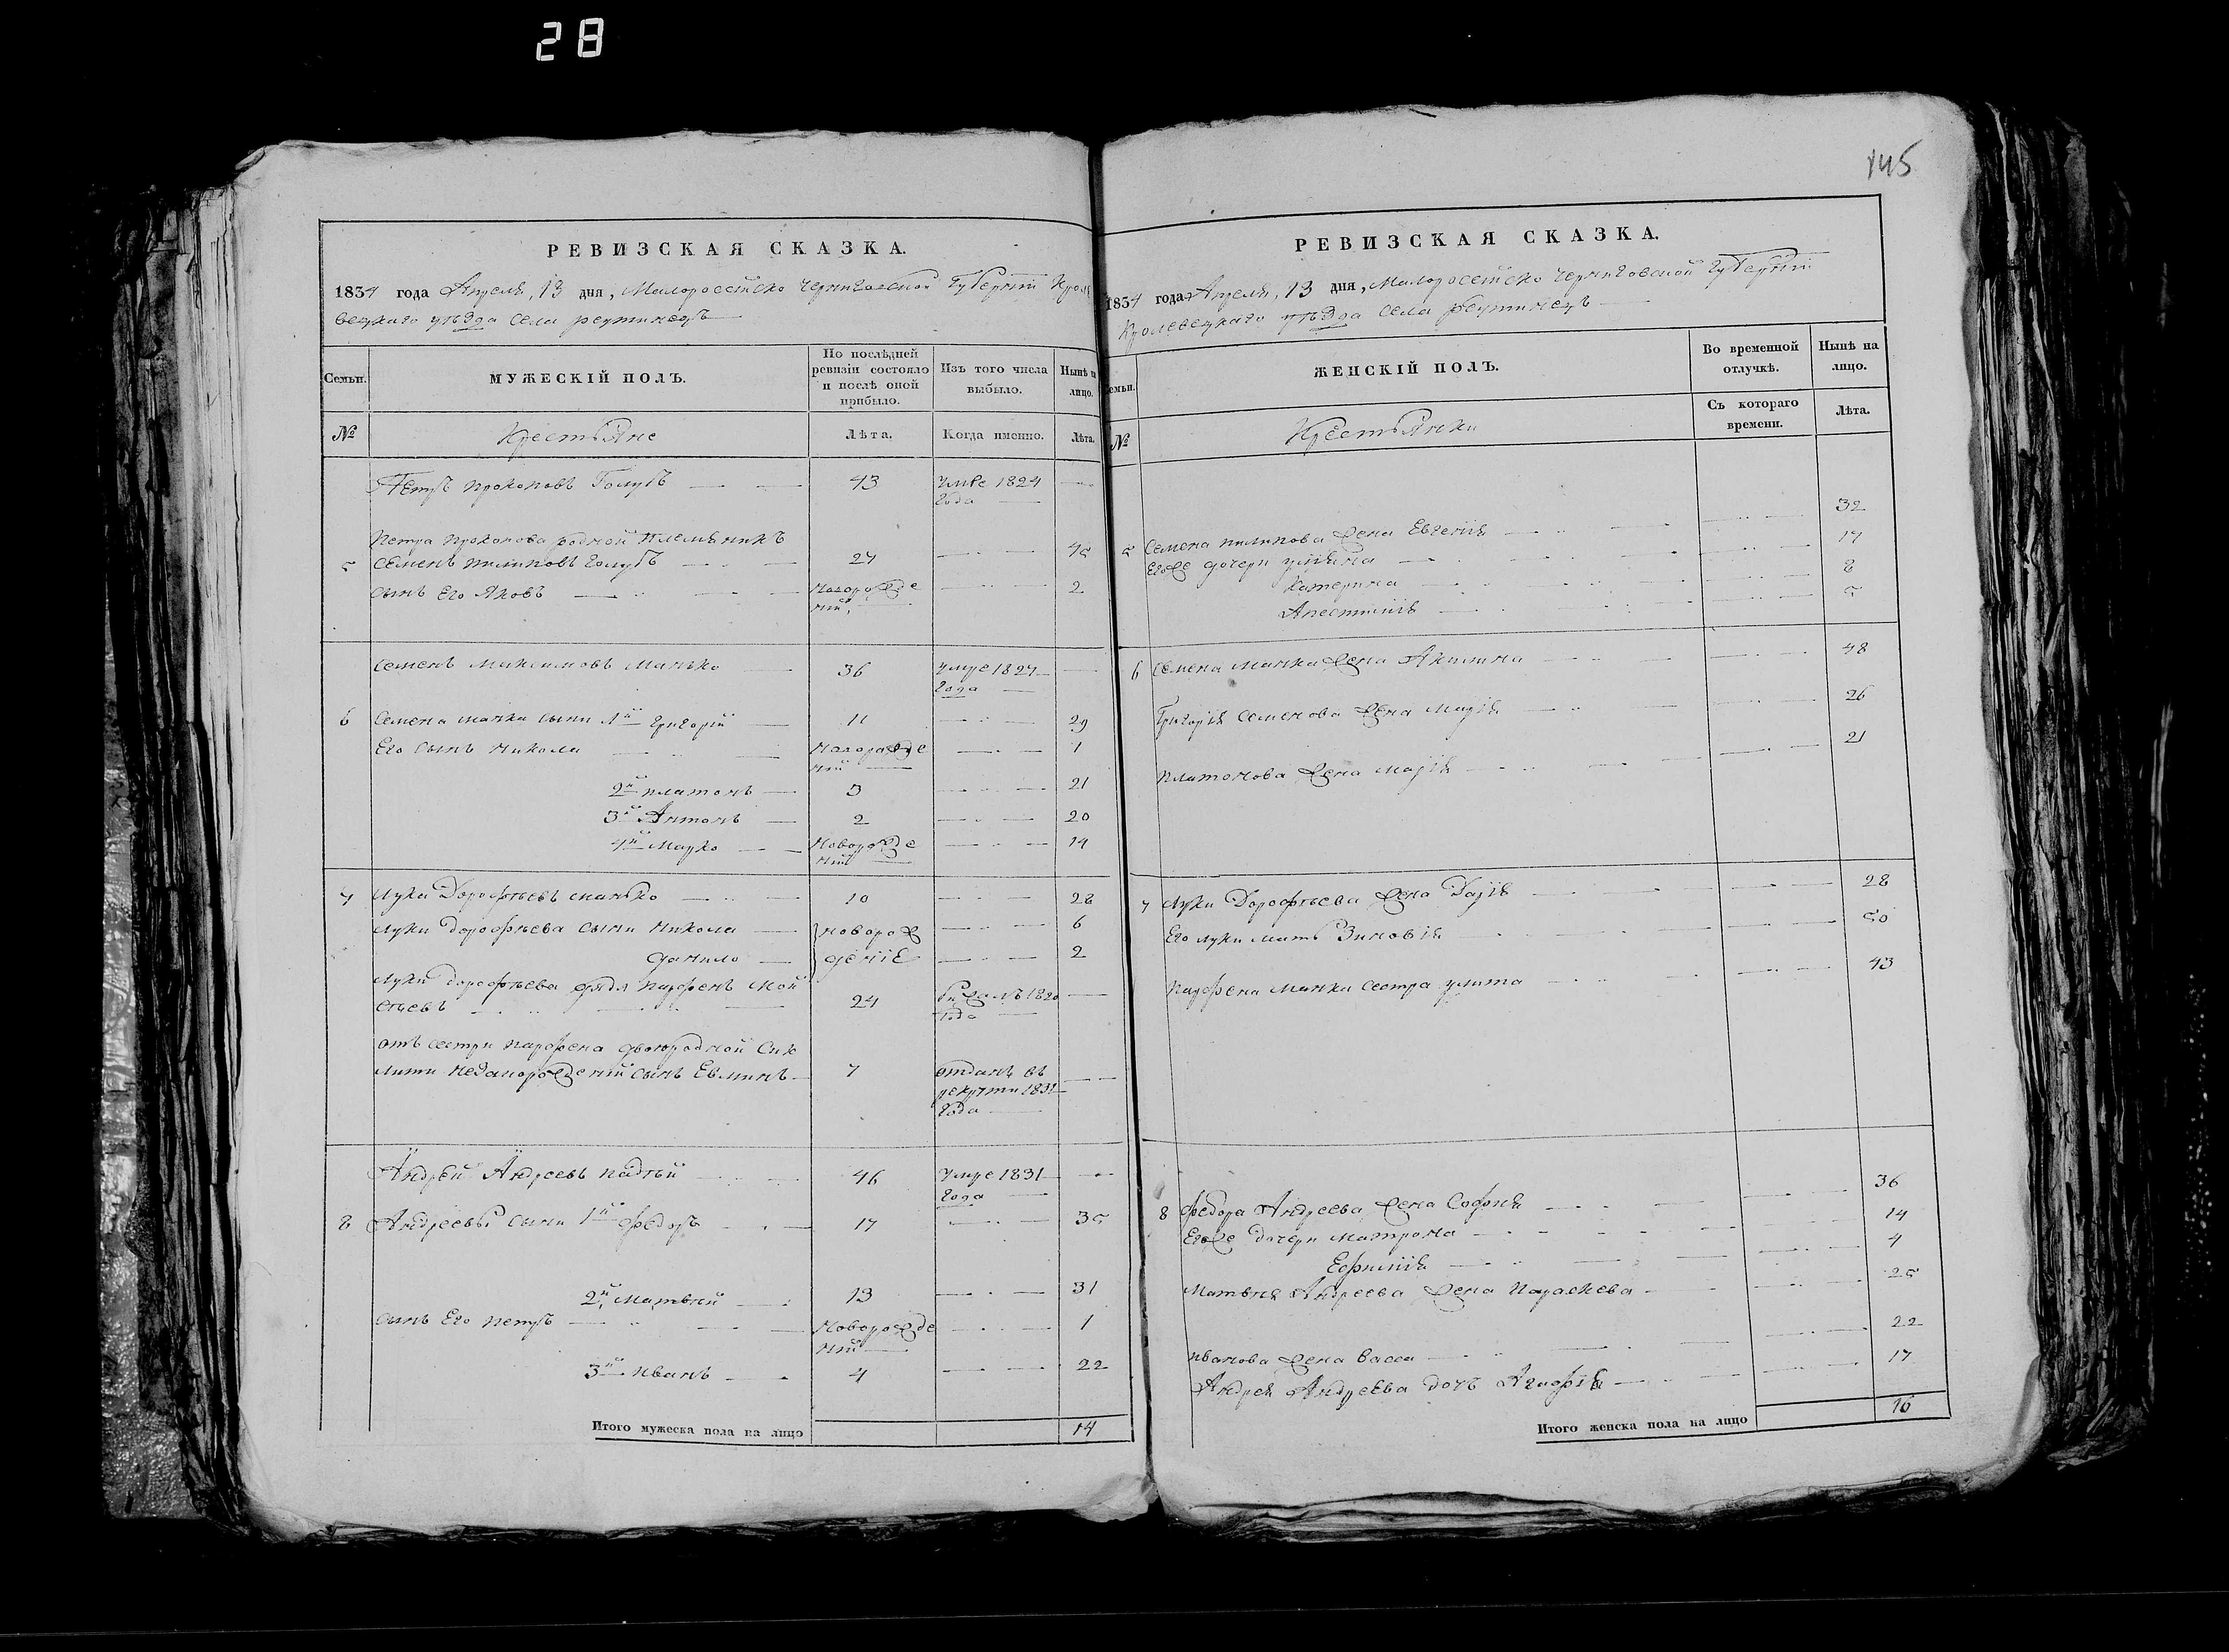 28
145
РЕВИЗСКАЯ СКАЗКА.
1834 года Апреля, 13 дня, Малоросейско Черниговской Губерній Кроле
вецкаго уѣзда села реутинецъ
Семьи.
МУЖЕСКІЙ ПОЛЪ.
По послѣдней ревизіи состояло и послѣ оной прибыло.
Изъ того числа выбыло.
Нынѣ на лицо.
№
Крестьяне
Лѣта.
Когда именно.
Лѣта.
Петръ прокоповъ Голубъ 43 Умре 1824 года
Петра прокопова родной племѣникъ
5 Семенъ пилиповъ голубъ 27 45
сынъ Его Яковъ Новорожде ній 2
Семенъ Максимовъ Манько 36 Умре 1827 года
6 Семена манка сыни 1й григорій 11 29
Его сынъ Никола Новорожде ній 1
2й платонъ 3 21
3й Антонъ 2 20
4й Марко Новорожде ній 14
7 Луки Дорофѣевъ манько 10 28
Луки дорофѣева сыни Никола новорож 6
данило деніе 2
Луки дорофѣева дядя парфенъ Мой
сѣевъ 24 1820 года
отъ сестри парфена двоюродной
сынъ Евлинъ 7 отданъ въ рекрути 1831 года
Андрей Андреевъ падтый 46 Умре 1831 года
8 Андреевы сыни 1й федоръ 17 35
2й Матвей 13 31
сынъ Его петръ Новорожде ній 1
3й иванъ 4 22
Итого мужеска пола на лицо 14
РЕВИЗСКАЯ СКАЗКА.
1834 года Апреля, 13 дня, Малоросейско Черниговской Губерній
Кролевецкаго уѣзда села реутинецъ
Семьи.
ЖЕНСКІЙ ПОЛЪ.
Во временной отлучкѣ.
Нынѣ на лицо.
№
Крестьянки
Съ котораго времени.
Лѣта.
5 Семена пилипова жена Евгенія 32
Егоже дочери улияна 17
Катерина 8
Анестинія 5
6 Семена Манка жена Акилина 48
Григорія Семенова жена Марія 26
платонова жена марія 21
7 Луки Дорофѣева жена Дарія 28
Его луки мать Зиновія 50
парфена Манка сестра улита 43
8 Федора Андреева жена София 36
Егоже дочери матрона 14
Ефимія 4
Матвея Андреева жена параскева 25
иванова жена васса 22
Андрея Андреева дочь Агафія 17
Итого женска пола на лицо 16